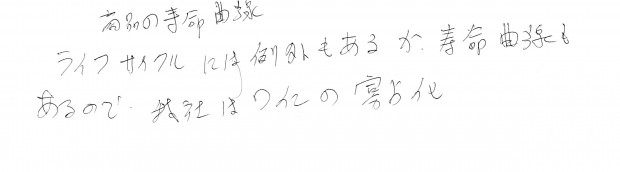 商品の寿命曲線
ライフサイクルには例外もあるが、寿命曲線も
あるので、我社はワインの寡占化